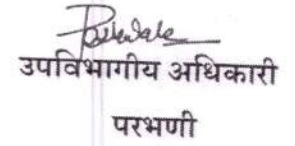 उपविभागीय अधिकारी
परभणी